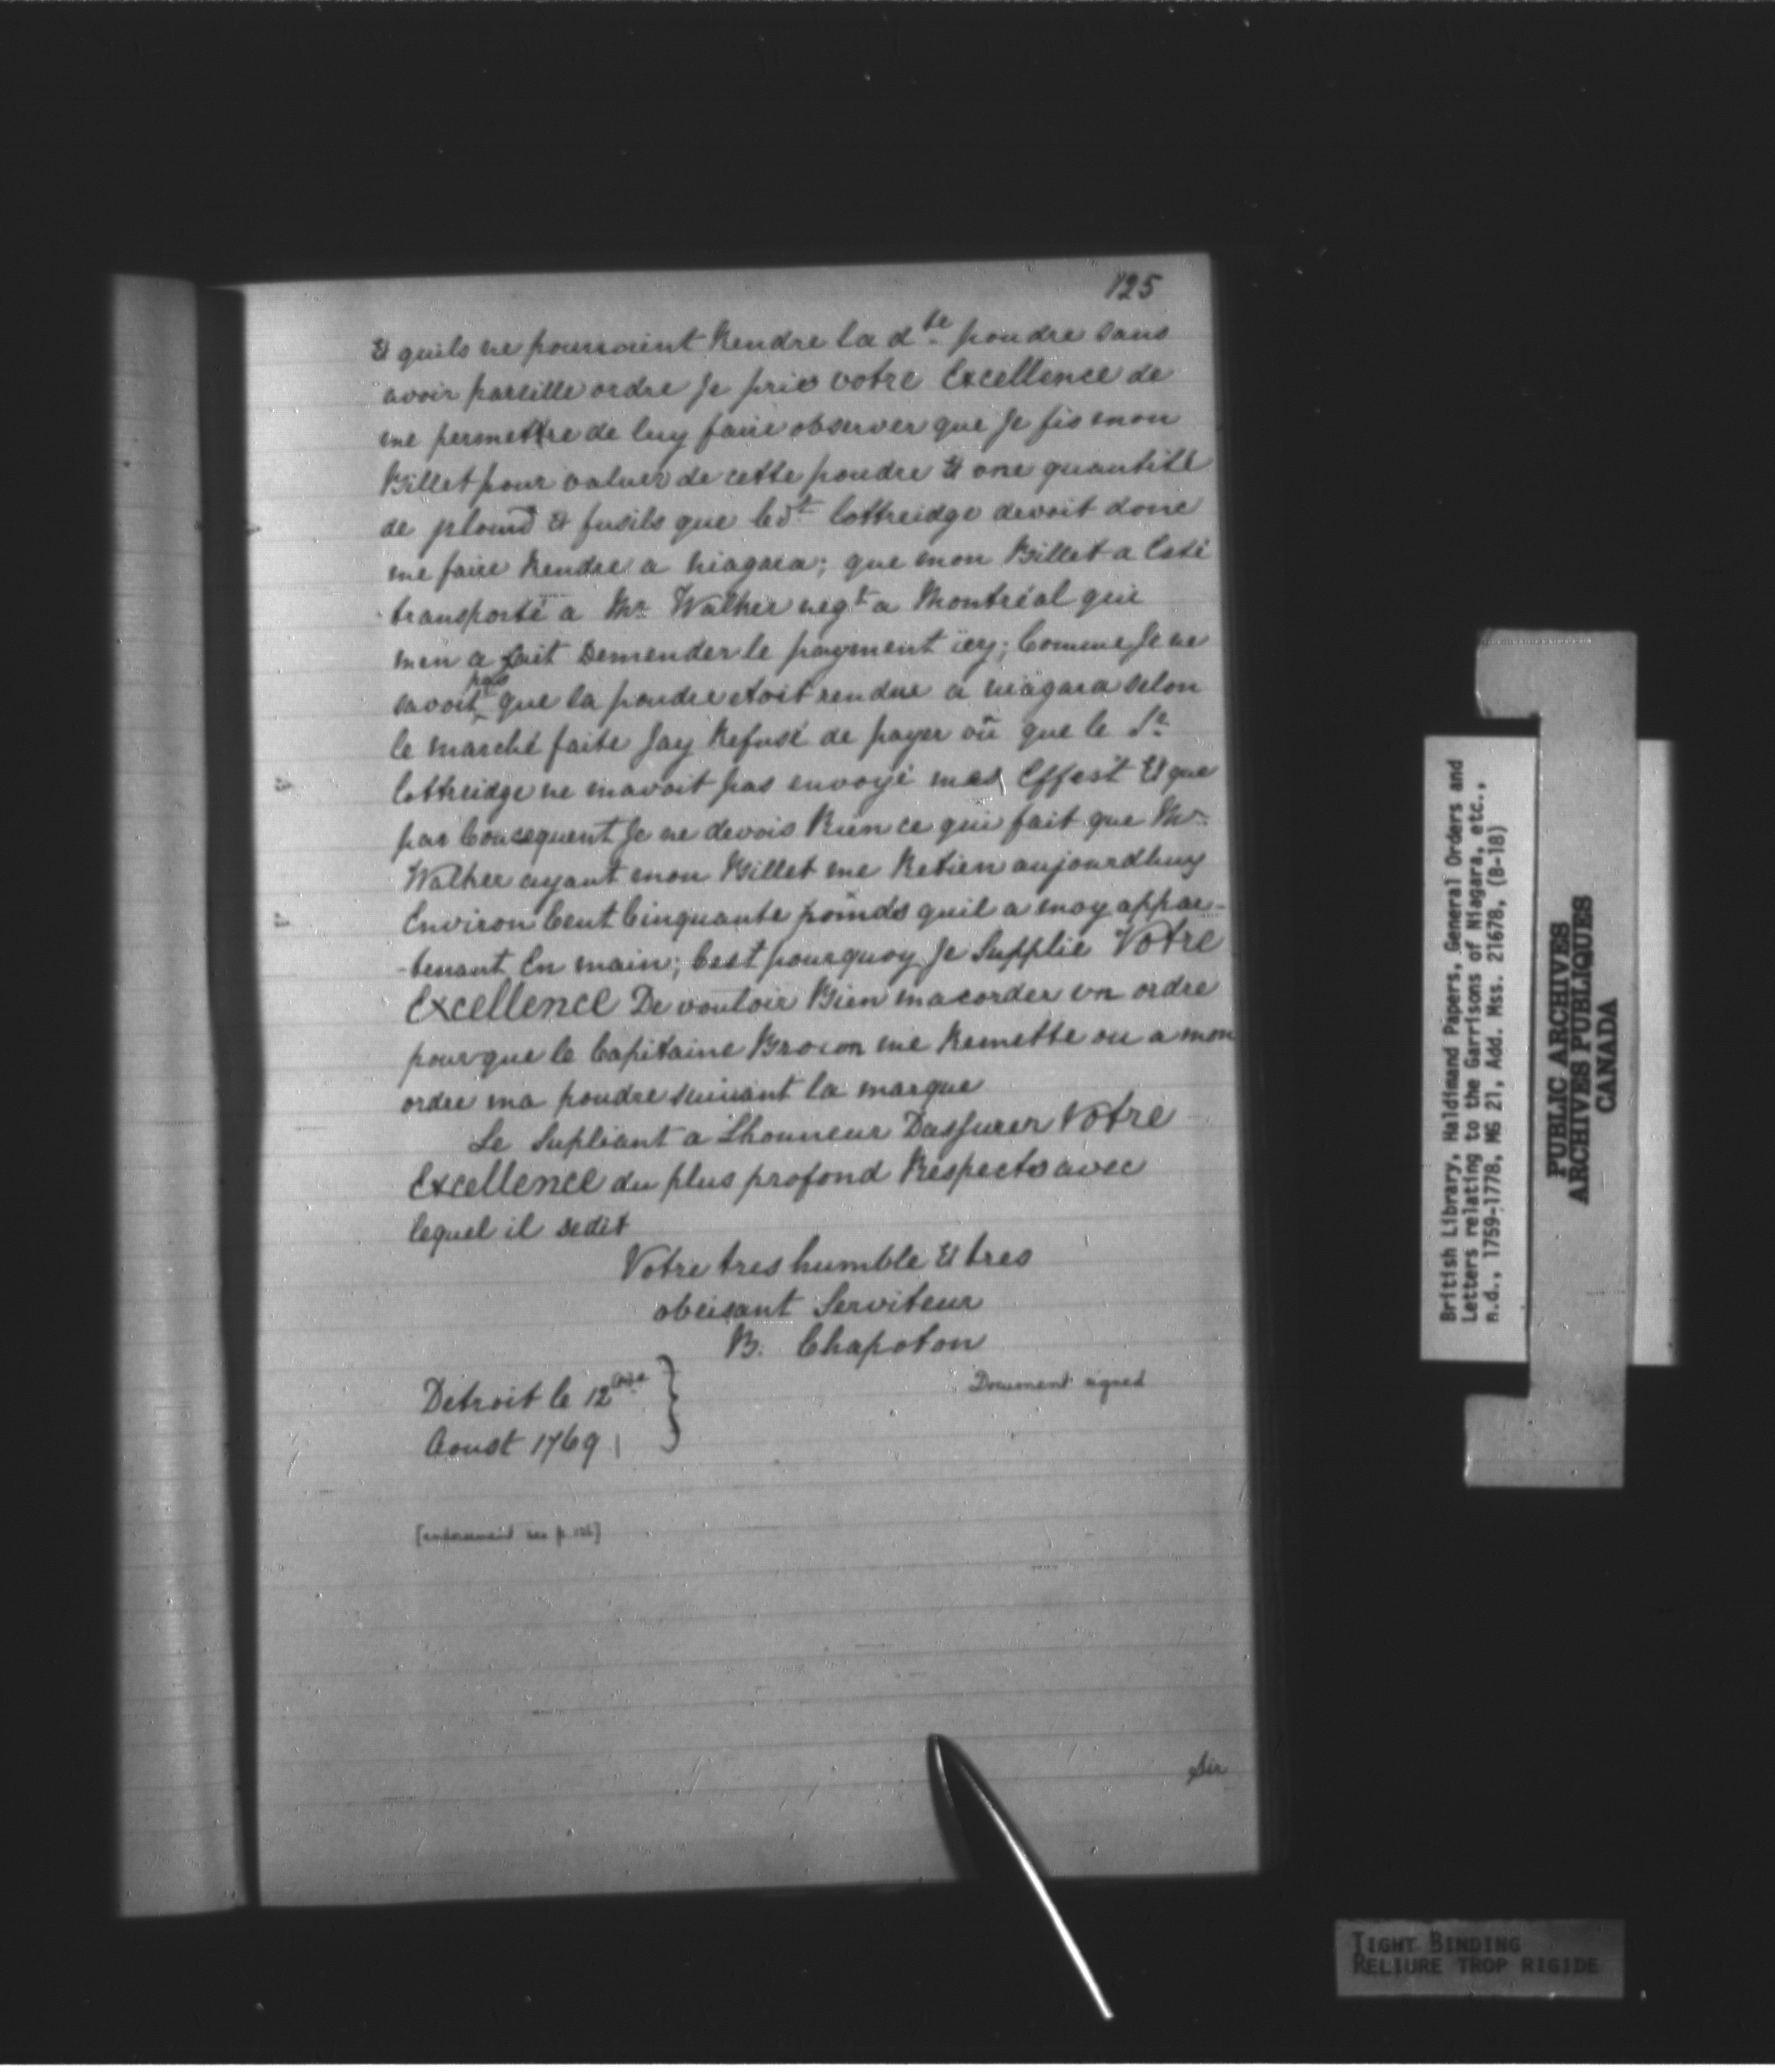 125
Et quils ne pourroient Rendre la dte poudre sans
avoir pareille ordre Je prie votre Excellence de
me permettre de luy faire observer que Je fis mon
Billet pour valuer de cette poudre Et une quantité
de plomb Et fusils que le St Cottreidge devoit donc
me faire Rendre a niagara; que mon Billet a Esté
transporté a Mr. Walker negt a Montréal qui
men a fait Demender le payement icy; Comme Je ne
savoit pas que la poudre etoit rendue a niagara selon
le marché faite Jay Refusé de payer où que le Sr
Cottreidge ne mavoit pas envoyé mes Effest Et que
par Consequent Je ne devois Rien ce qui fait que Mr.
Walker ayant mon Billet me Retien aujourdhuy
Environ Cent Cinquante poinds quil a moy appar-
-tenant En main; Cest pourquoy Je Supplie Votre
Excellence De vouloir Bien macorder un ordre
pour que le Capitaine Brown me Remette ou a mon
ordre ma poudre suivant la marque
Le Supliant a Lhonneur Dassurer Votre
Excellence du plus profond Respects avec
lequel il sedit
Votre tres humble Et tres
obeisant Serviteur
B. Chapoton
Document signed
Détroit le 12
Aoust 1769
[endorsement see p. 126]
Sir
British Library, Haldimand Papers, General Orders and
Letters relating to the Garrisons of Niagara, etc.,
n.d., 1759-1778, MG 21, Add. Mss. 21678, (B-18)
PUBLIC ARCHIVES
ARCHIVES PUBLIQUES
CANADA
TIGHT BINDING
RELIURE TROP RIGIDE